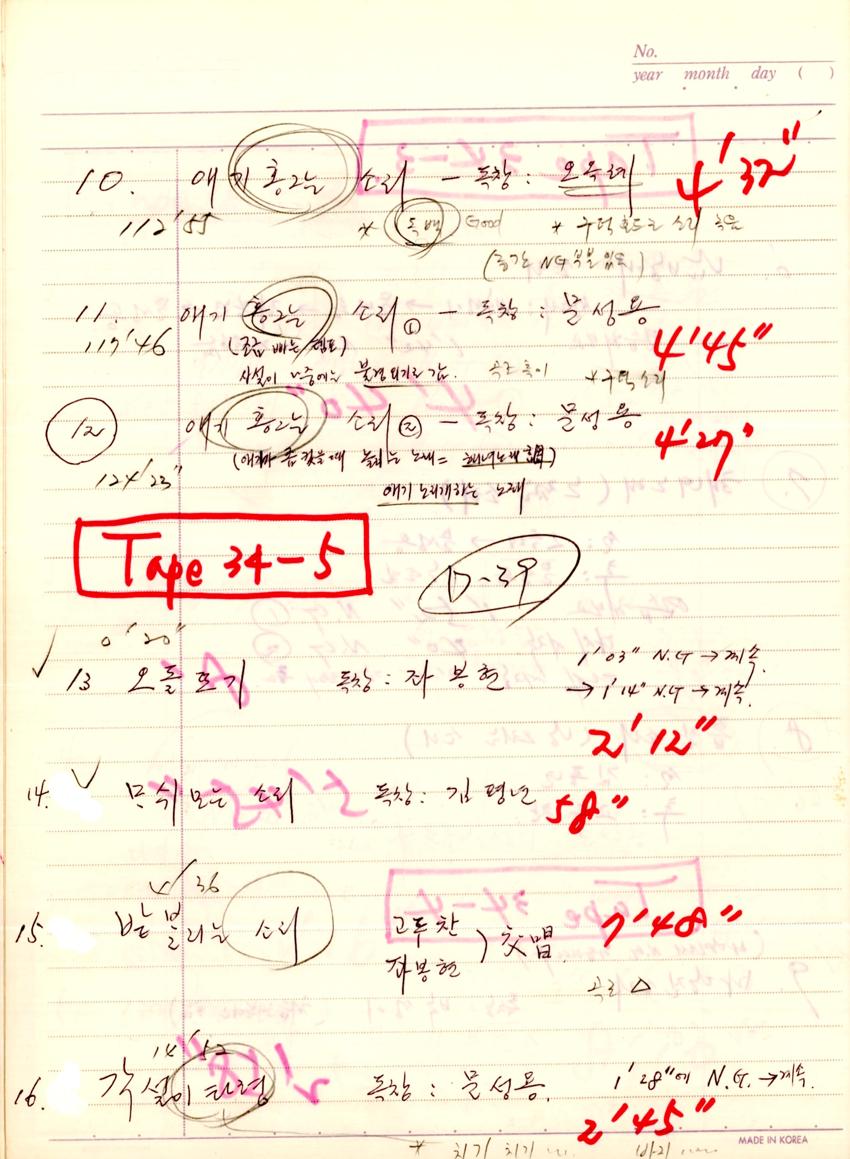 No.
year month day ( )
10. 애기 홍그는 소리 - 독창 : 오옥례 4'32"
112'55 * 독백 Good * 구덕 흔드는 소리
(중간 NG 부분 있음)
11. 애기 홍그는 소리 ① - 독창 : 문성용
117'46 (조금 빠른 템포) 4'45"
사설이 나중에는 불경외기로 감. * 구덕소리
12 애기 홍그는 소리 ② - 독창 : 문성용
4'27"
124'23" (애기가 좀 컸을때 놀리는 노래 =
애기 노래개하는 노래
Tape 34-5 D-39
0'20"
13 오돌또기 독창 : 좌봉현 1'03" N.G → 계속.
→ 1'14" N.G → 계속.
2'12"
14. 모는 소리 독창 : 김평년 58"
4'36
15. 밧 볼리는 소리 고두찬 7'48"
좌봉현 ) 交唱.
곡조 △
14'52
16. 각설이 타령 독창 : 문성용. 1'28"에 N.G. → 계속.
2'45"
MADE IN KOREA
* 치기 치기 ....